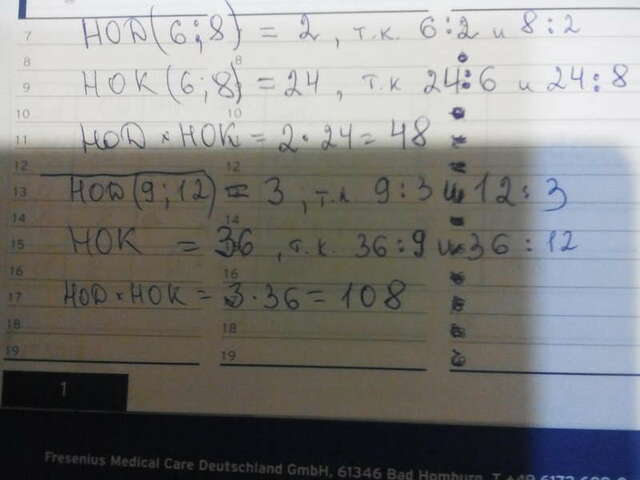 7 НОД(6;8) = 2, т.к. 6:2 и 8:2
8 8
9 НОК(6;8) = 24, т.к 24:6 и 24:8
10 10
11 НОД × НОК = 2·24 = 48
12 12
13 НОД(9;12) = 3, т.к. 9:3 и 12:3
14 14
15 НОК = 36, т.к. 36:9 и 36:12
16 16
17 НОД × НОК = 3·36 = 108
18 18
19 19
1
Fresenius Medical Care Deutschland GmbH, 61346 Bad Homburg